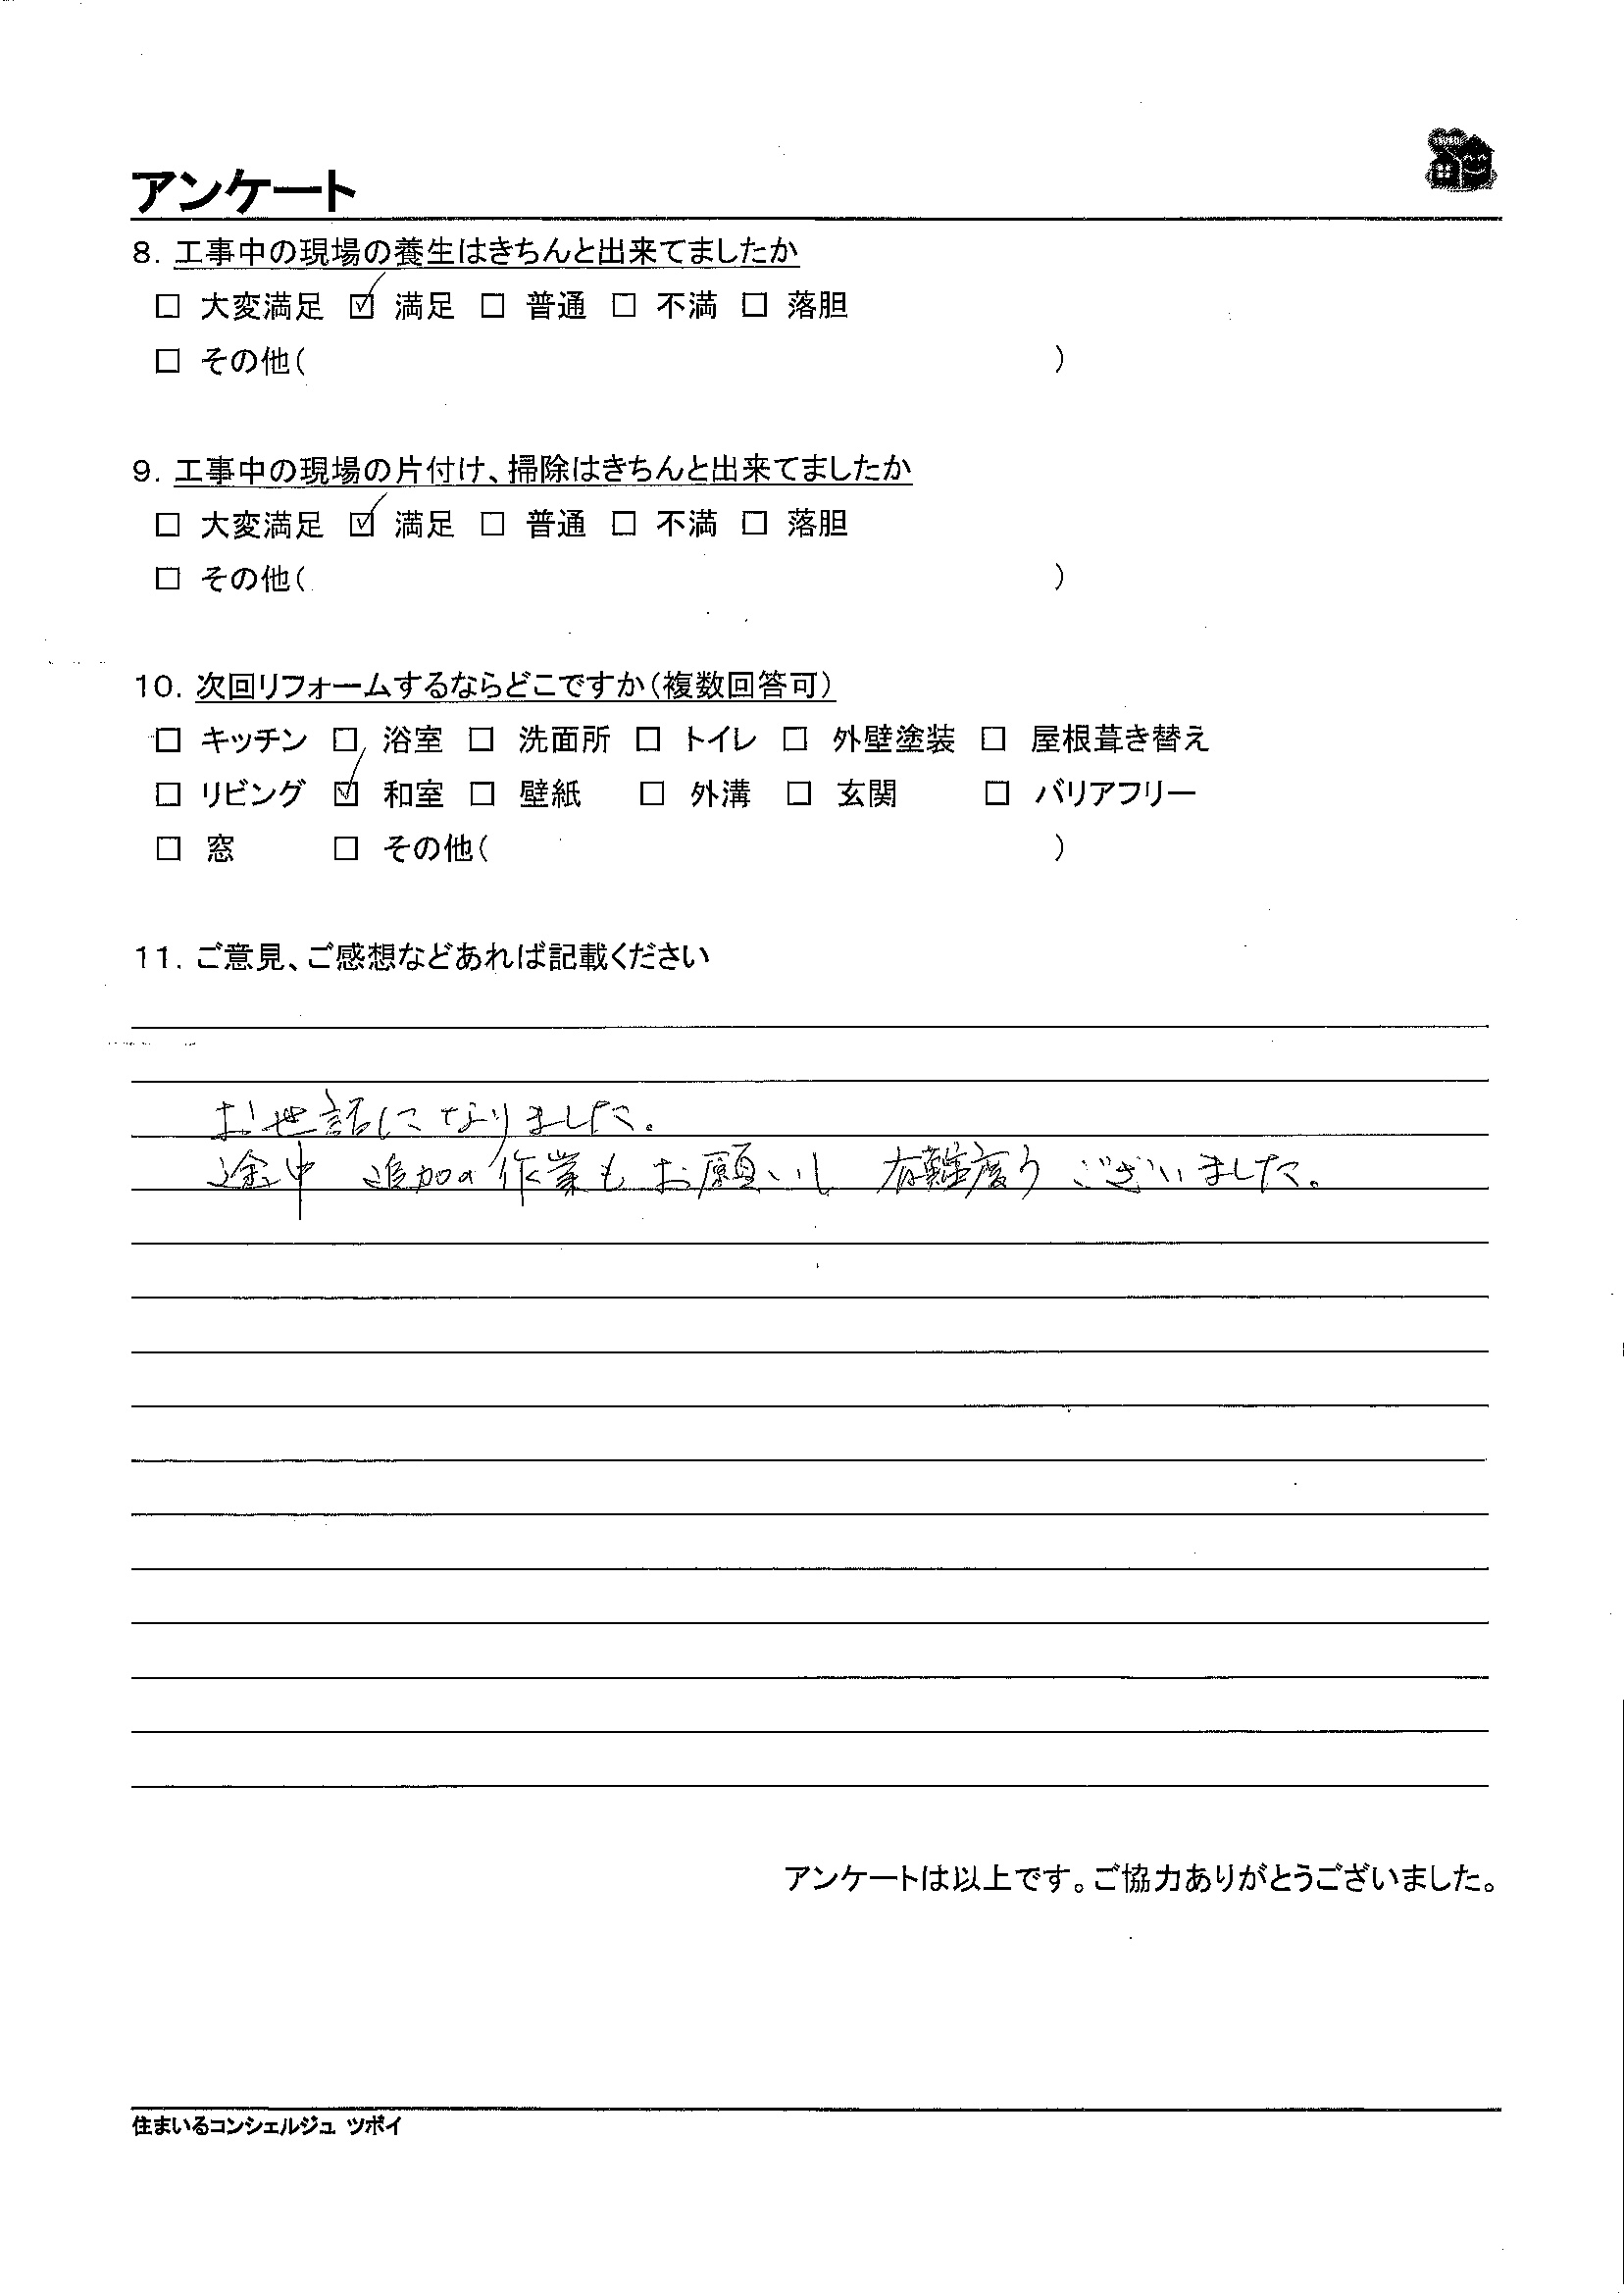 アンケート
8. 工事中の現場の養生はきちんと出来てましたか
□ 大変満足 ☑ 満足 □ 普通 □ 不満 □ 落胆
□ その他( )
9. 工事中の現場の片付け、掃除はきちんと出来てましたか
□ 大変満足 ☑ 満足 □ 普通 □ 不満 □ 落胆
□ その他( )
10. 次回リフォームするならどこですか(複数回答可)
□ キッチン □ 浴室 □ 洗面所 □ トイレ □ 外壁塗装 □ 屋根葺き替え
□ リビング ☑ 和室 □ 壁紙 □ 外溝 □ 玄関 □ バリアフリー
□ 窓 □ その他( )
11. ご意見、ご感想などあれば記載ください
お世話になりました。
途中 追加の作業もお願いし 有難度うございました。
アンケートは以上です。ご協力ありがとうございました。
住まいるコンシェルジュ ツボイ